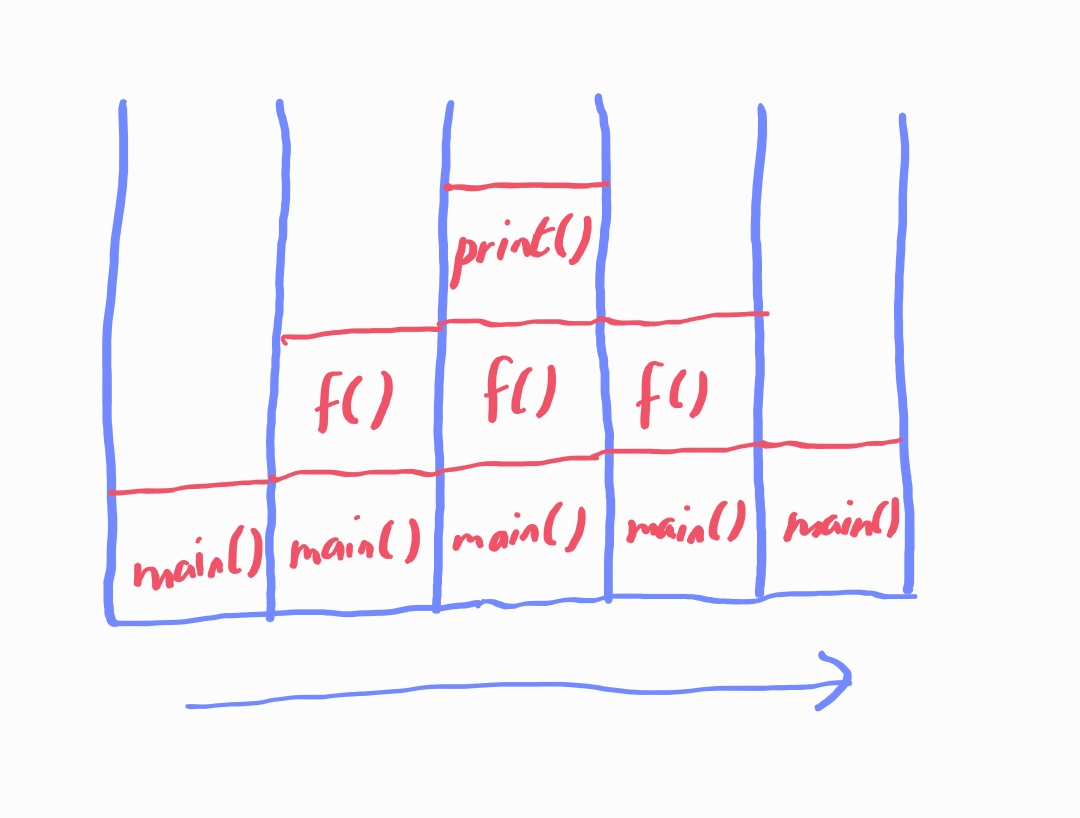 print()
f() f() f()
main() main() main() main() main()